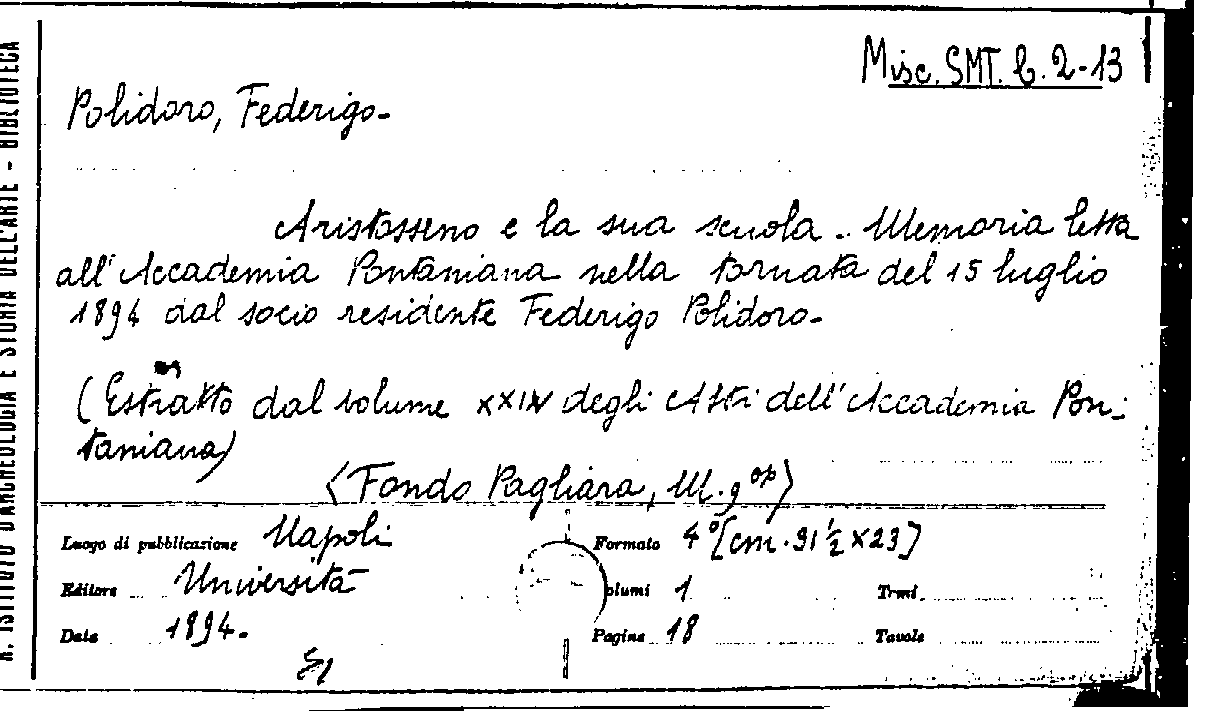 R. ISTITUTO D'ARCHEOLOGIA E STORIA DELL'ARTE - BIBLIOTECA
Misc. SMT. b. 2-13
Polidoro, Federigo-
Aristosseno e la sua scuola. Memoria letta
all'Accademia Pontaniana nella tornata del 15 luglio
1894 dal socio residente Federigo Polidoro-
(Estratto dal volume XXIV degli Atti dell'Accademia Pon-
taniana)
<Fondo Pagliara, M. 9 op>
Luogo di pubblicazione Napoli Formato 4° [cm. 31½ x 23]
Editore Università Volumi 1 Tomi
Data 1894. Pagine 18 Tavole